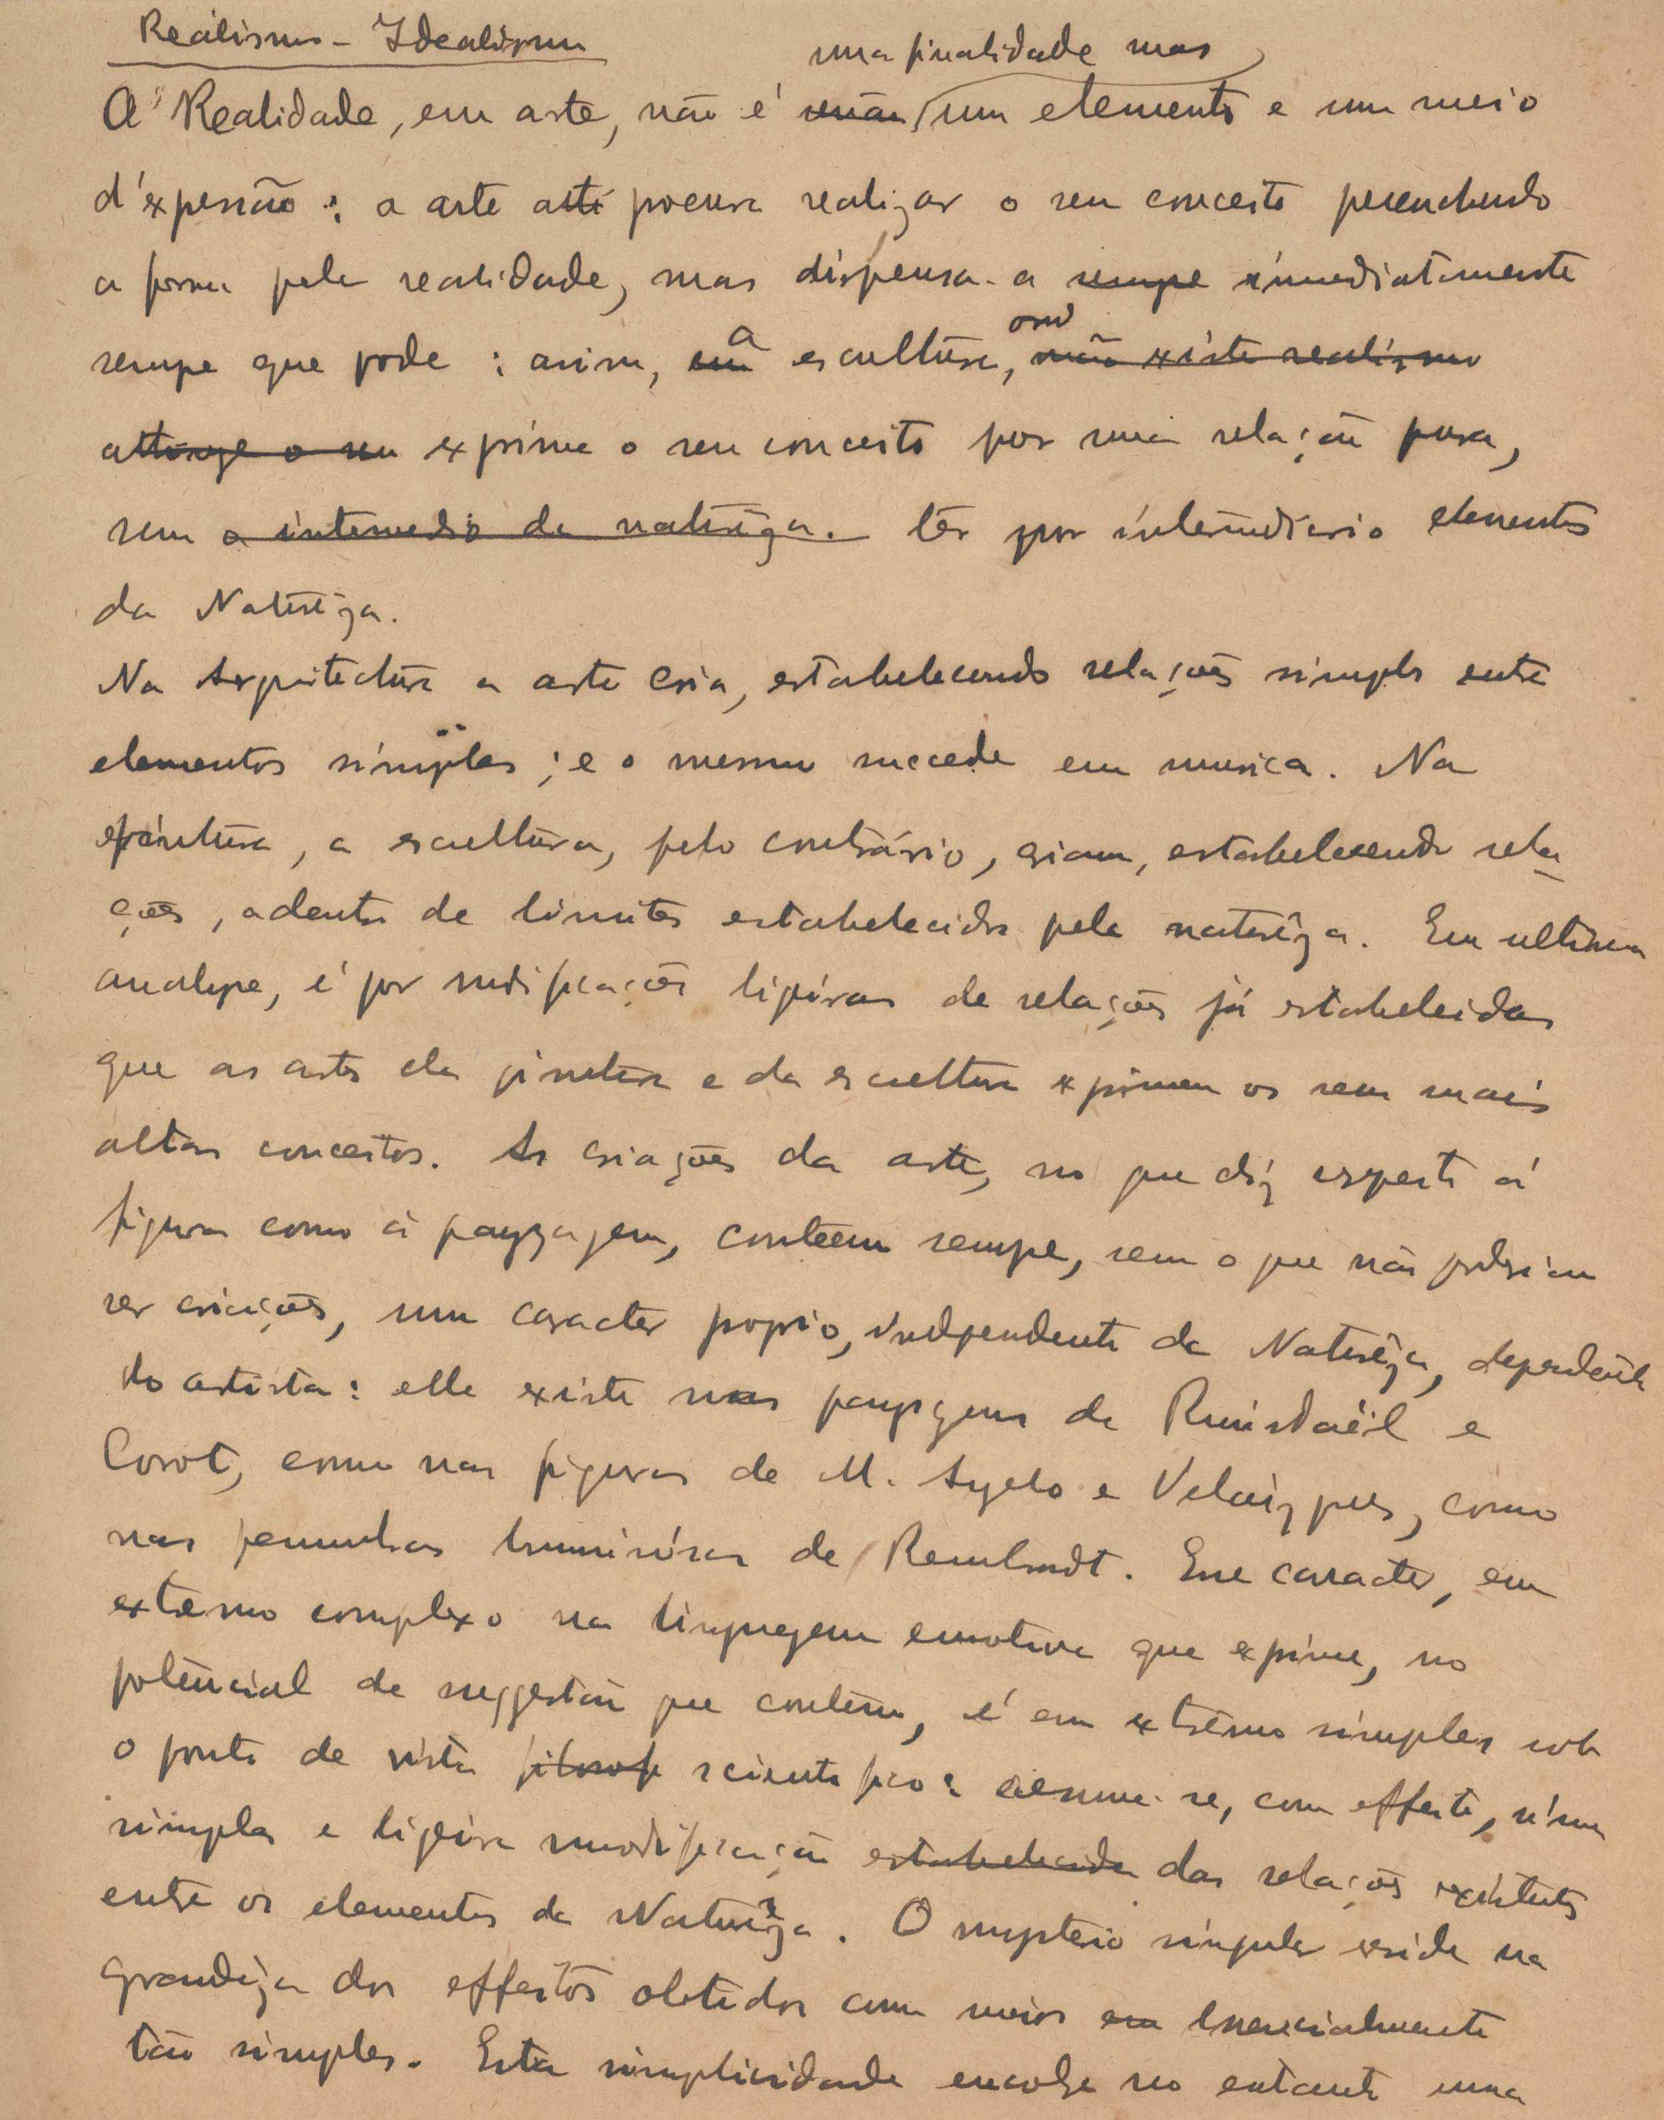 Realismo - Idealismo
uma finalidade mas
A Realidade, em arte, não é senão um elemento e um meio
d'expressão: a arte até procura realizar o seu conceito preenchendo
a forma pela realidade, mas dispensa-a sempre immediatamente
sempre que pode: assim, em a escultura, não existe realismo
attinge o seu exprime o seu conceito por uma relação pura,
sem o intermedio da naturêza. têr por intermediario elementos
da Naturêza.
Na Arquitectura a arte cria, estabelecendo relações simples entre
elementos simples; e o mesmo succede em musica. Na
pintura, a escultura, pelo contrário, criam, estabelecendo rela-
ções, adentro de limites estabelecidos pela naturêza. Em ultima
analyse, é por modificações ligeiras de relações já estabelecidas
que as artes da pintura e da escultura exprimem os seus mais
altos conceitos. As criações da arte, no que diz respeito á
figura como á payzagem, contêem sempre, sem o que não poderiam
ser criações, um caracter proprio, independente da Naturêza, dependente
do artista: elle existe nas paysagens de Ruisdaël e
Corot, como nas figuras de M. Angelo e Velazques, como
nas penumbras luminósas de Rembrandt. Esse caracter, em
extremo complexo na linguagem emotiva que exprime, no
potencial de suggestão que contêm, é em extrêmo simples sob
o ponto de vista filosof scientifico: resume-se, com effeito, n'uma
simples e ligeira modificação estabelecida das relações existentes
entre os elementos da Naturêza. O mysterio singular reside na
grandêza dos effeitos obtidos com meios em essencialmente
tão simples. Esta simplicidade envolve no entanto uma